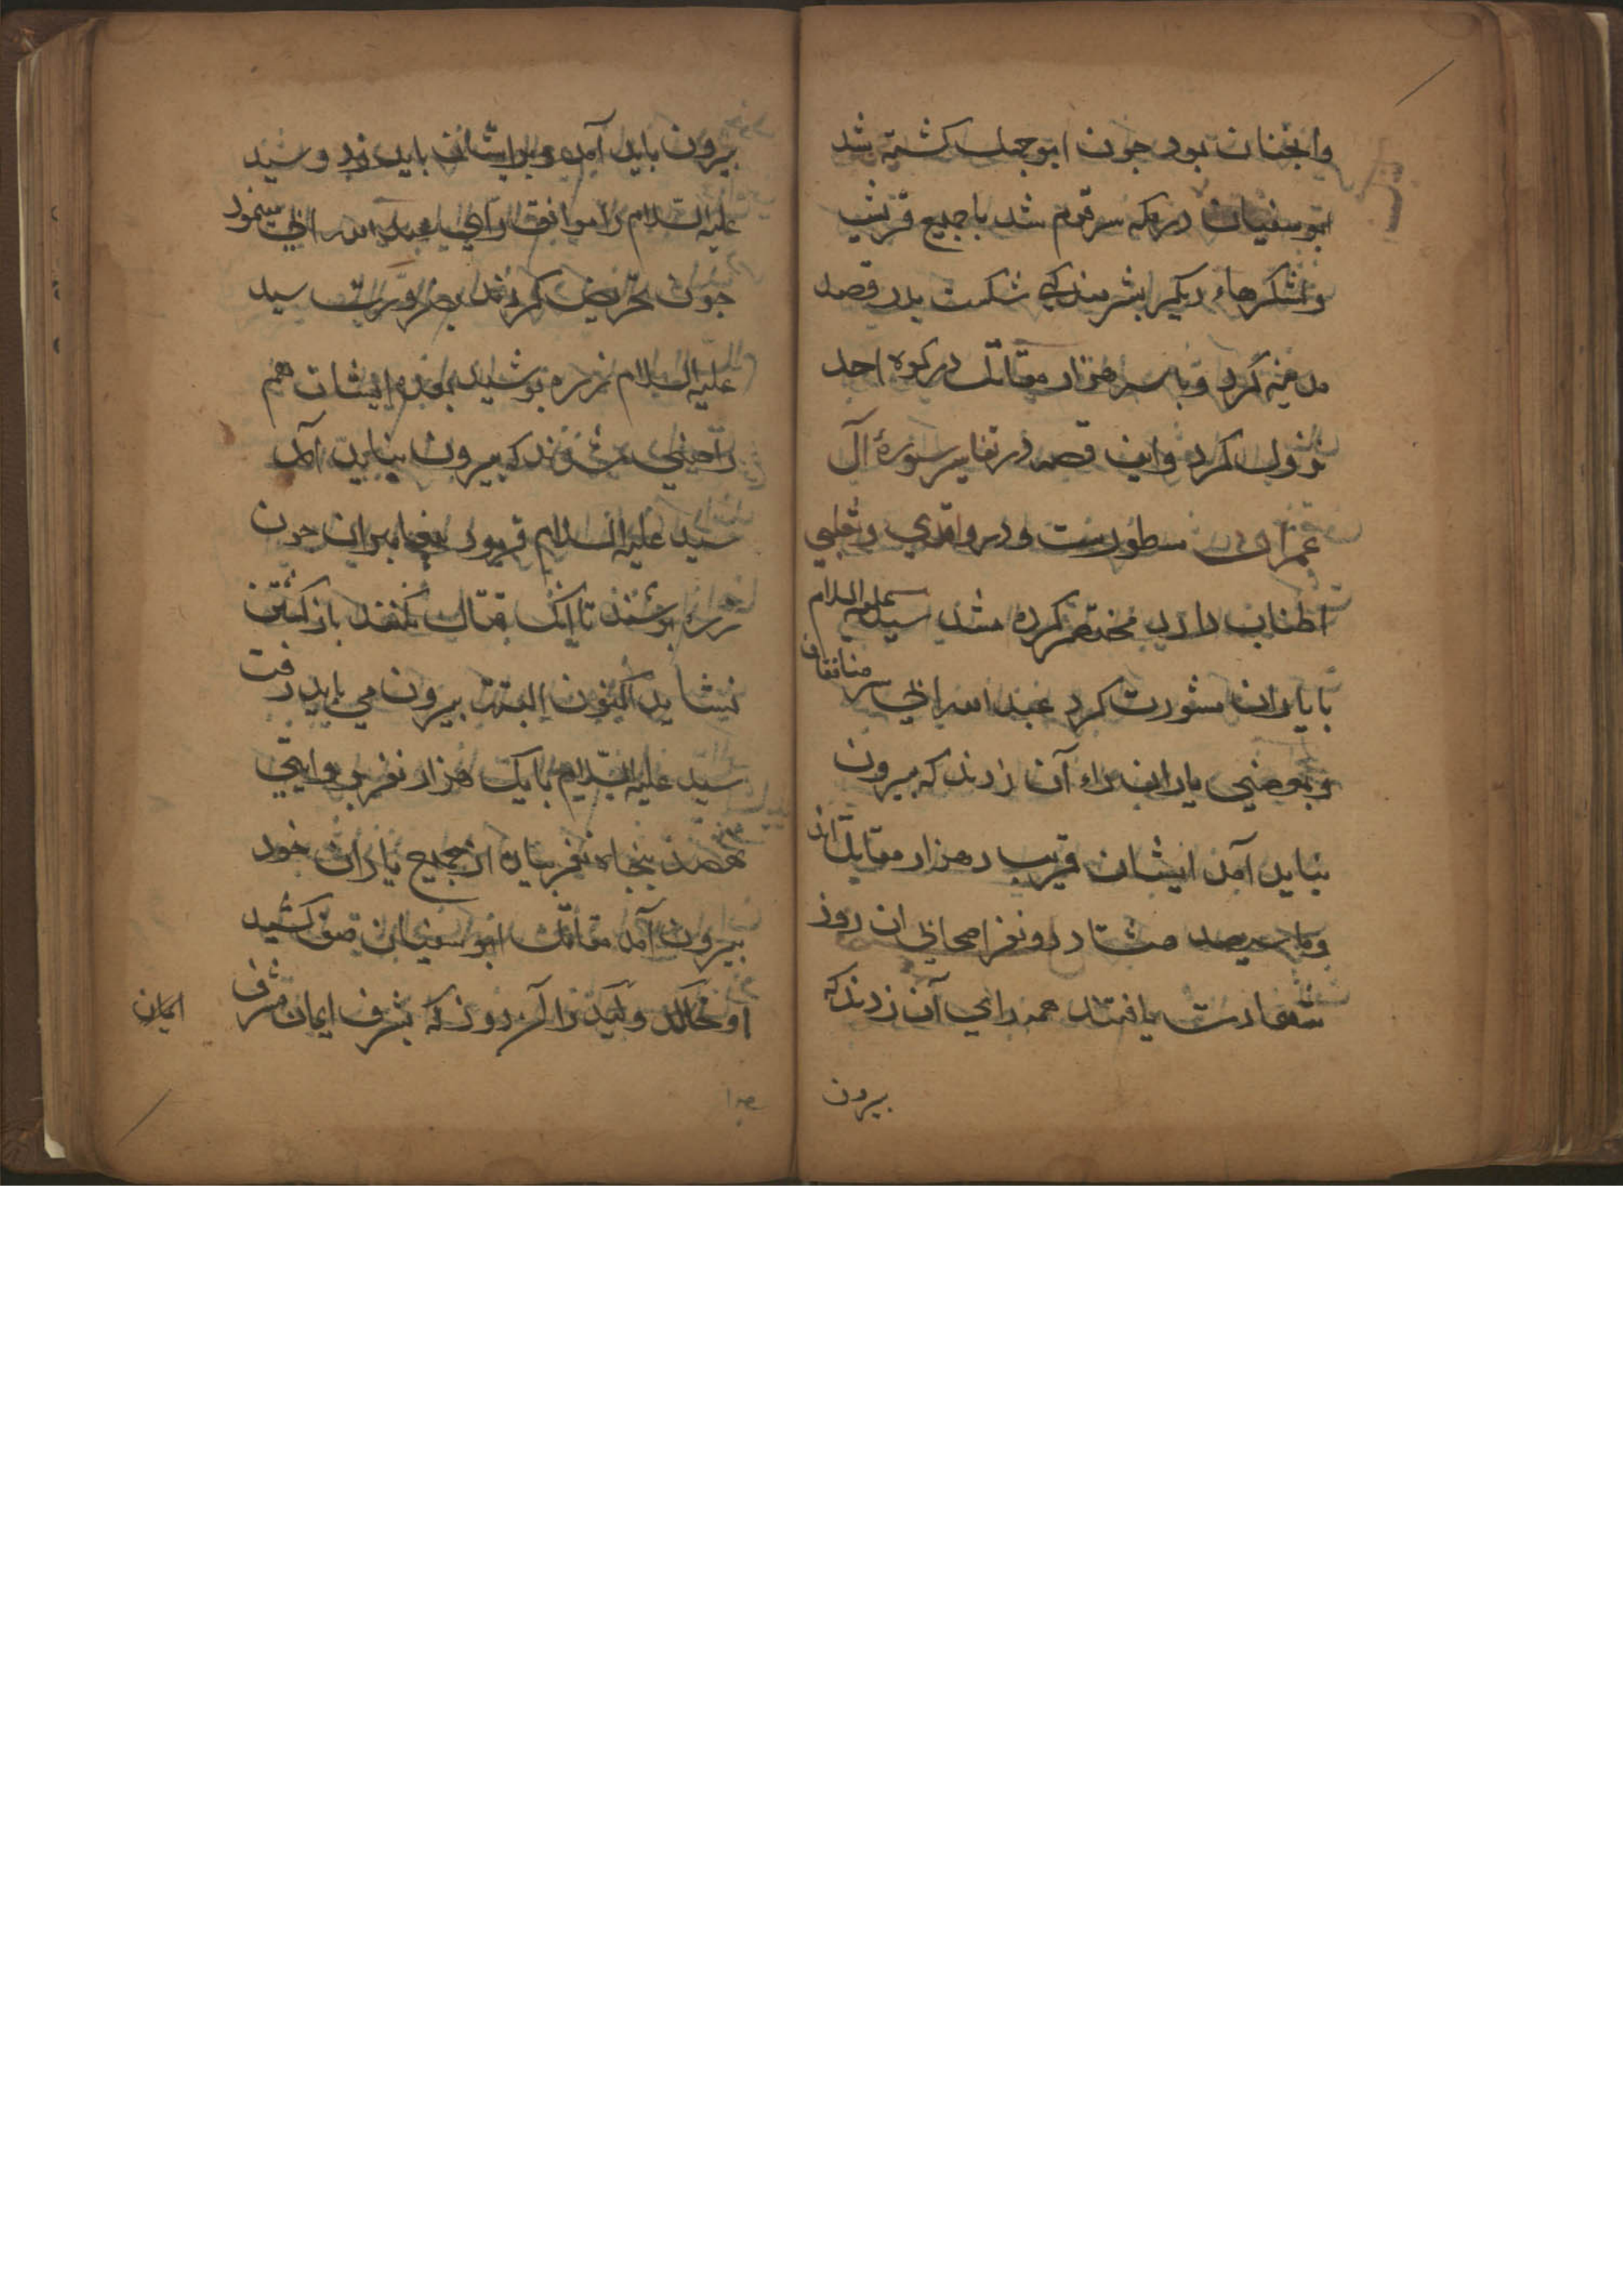 وانجنان بود جون ابو جهل کشته شد
ابو سفیان در مکه سر قوم شد با جمیع قریش
و لشکرهاء دیکر بشرمندکی شکست بدر قصد
مدینه کرد و با سه هزار مقاتل در کوه احد
نزول کرد و این قصه در تفاسیر سورۀ آل
عمران مسطورست و در واقدی و ثعلبی
اطناب دارد مختصر کرده شد سید علیه السلام
با یاران مشورت کرد عبد الله ابی سر منافقان
و بعضی یاران راء آن زدند که بیرون
نباید آمد ایشان قریب ده هزار مقاتل اند
وما سیصد هشتاد دو نفر اصحابی ان روز
شهادت یافتند همه رای آن زدند که
بیرون
بیرون باید آمد و بر ایشان باید زد و سید
علیه السلام را موافق رای عبد الله ابی مینمود
جون تحریض کردند بضرورت سید
علیه السلام زره پوشید بعده ایشان هم
راضی شدند که بیرون نباید آمد
سید علیه السلام فرمود پیغامبران جون
زره پوشند تا انک قتال نکنند باز کشتن
نشاید اکنون البته بیرون می باید رفت
سید علیه السلام با یک هزار نفر بروایتی
هفصد بنجاه نفر بیاده از جمیع یاران خود
بیرون آمد مقاتل ابو سفیان صف کشید
او خالد ولید را آن روز که بشرف ایمان مشرف
ایمان